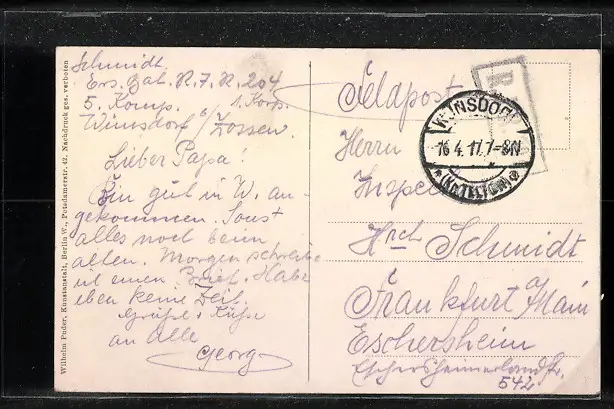 Schmidt.
Ers. Batl. R. J. R. 204
5. Komp. 1. Korps.
Wünsdorf b/Zossen.
Lieber Papa!
Bin gut in W. an-
gekommen. Sonst
alles noch beim
alten. Morgen schreibe
ich einen Brief. Habe
eben keine Zeit.
Grüße + Küsse
an alle
Georg
Wilhelm Puder, Kunstanstalt, Berlin W., Potsdamerstr. 42. Nachdruck ges. verboten
Feldpost
WÜNSDORF
16.4.17.7-8N
*(Kr. TELTOW)*
Herrn
Hrch Schmidt
Frankfurt a/Main
Eschersheim
Eschersheimerlandstr.
542